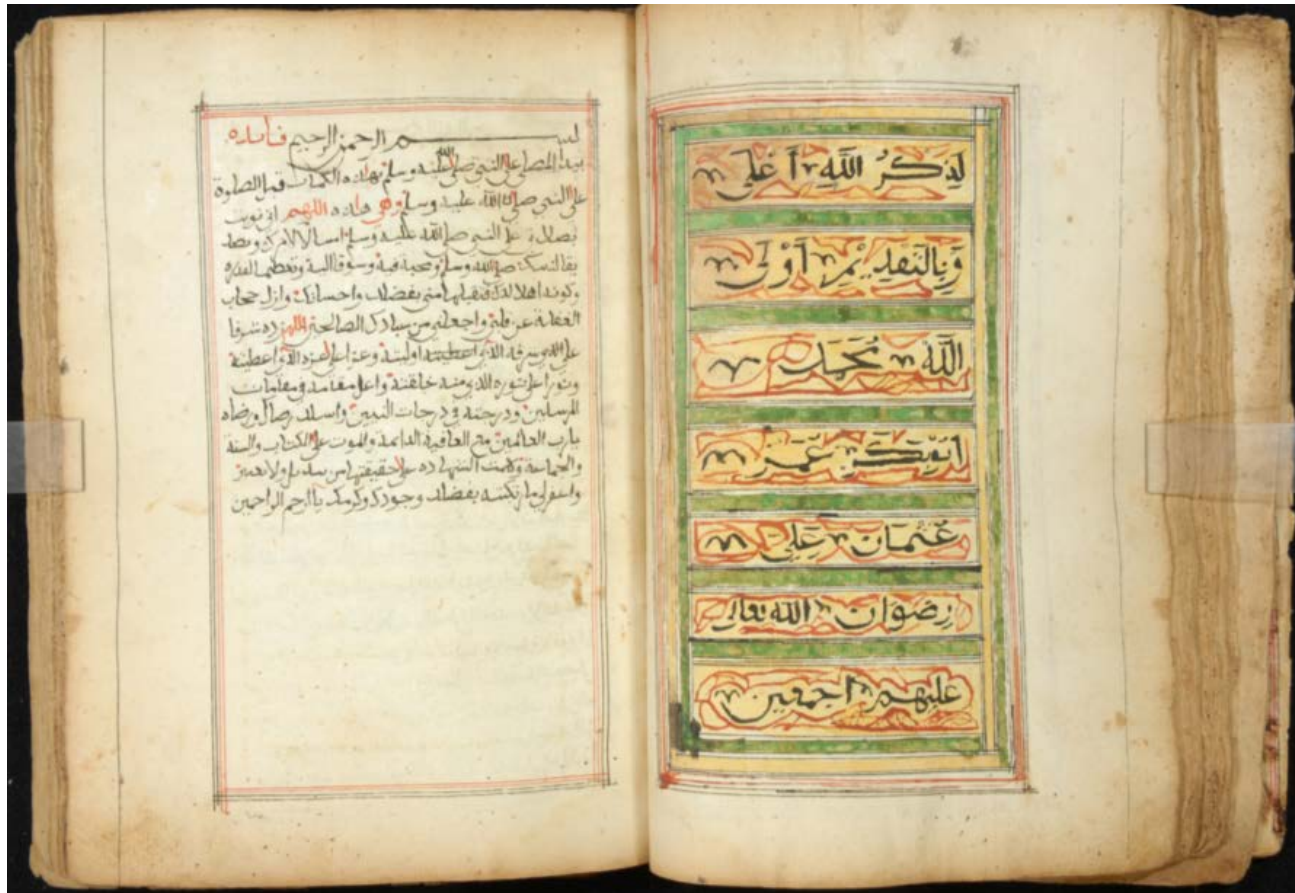 لذكر الله اعلى
وبالتقديم اولى
الله محمد
ابوبكر عمر
عثمان علي
رضوان الله تعالى
عليهم اجمعين
بســـم الرحمن الرحيم فايده
يبدا المصلي على النبي صلى الله عليه وسلم بهذه الكلمات قبل الصلوة
على النبي صلى الله عليه وسلم وهي هذه اللهم اني نويت
بصلاتي على النبي صلى الله عليه وسلم امتثالا لامرك وتصد
يقا لنبيك صلى الله وسلم ومحبة فيه وشوقا اليه وتعظيما لقدره
وكونه اهلا لذلك فتقبلها مني بفضلك واحسانك وازل حجاب
الغفلة عن قلبي واجعلني من عبادك الصالحين اللهم زده شرفا
على الذي اوليته وعزا على عزه الذي اعطيته
ونورا على نوره الذي منه خلقته واعل مقامه في مقامات
المرسلين ودرجته في درجات النبيين واسلك رضاك ورضاه
يارب العالمين مع العافية الدايمة والموت على الكتاب والسنة
والجماعة وكلمت الشهاده على حقيقتها من تبديل ولا تغيير
واغفرلي ما ارتكبته بفضلك وجودك وكرمك يا ارحم الراحمين